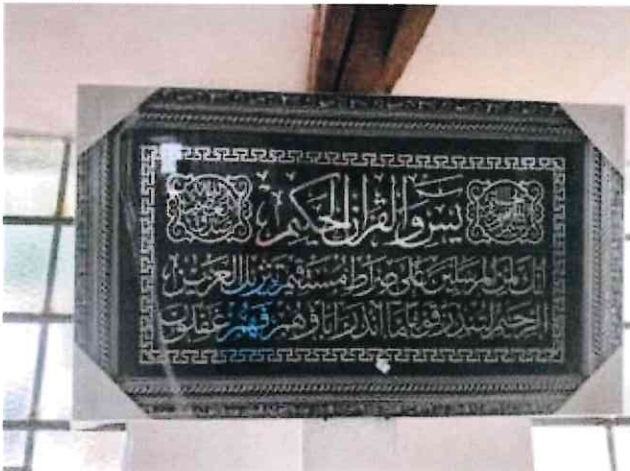 يس والقرآن الحكيم
إنك لمن المرسلين على صراط مستقيم تنزيل العزيز
الرحيم لتنذر قوما ما أنذر آباؤهم فهم غافلون